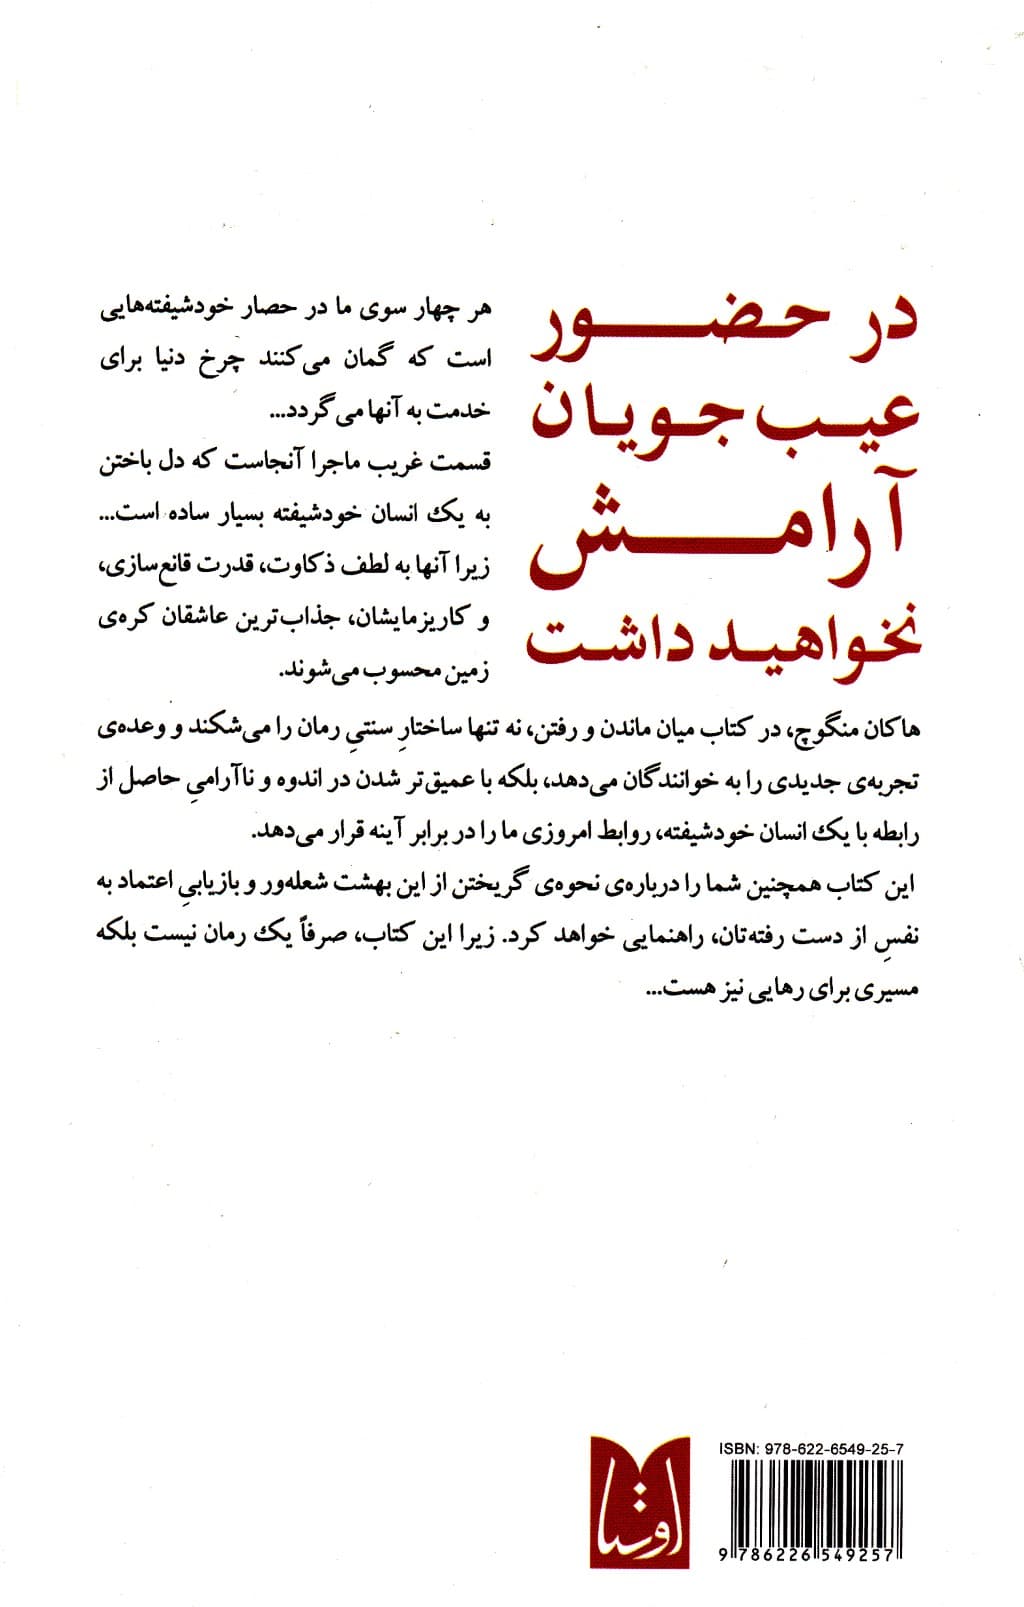 در حضور
عیب‌جویان
آرامش
نخواهید داشت
هر چهار سوی ما در حصار خودشیفته‌هایی
است که گمان می‌کنند چرخ دنیا برای
خدمت به آنها می‌گردد...
قسمت غریب ماجرا آنجاست که دل باختن
به یک انسان خودشیفته بسیار ساده است...
زیرا آنها به لطف ذکاوت، قدرت قانع‌سازی،
و کاریزمایشان، جذاب‌ترین عاشقان کره‌ی
زمین محسوب می‌شوند.
هاکان منگوچ، در کتاب میان ماندن و رفتن، نه تنها ساختارِ سنتیِ رمان را می‌شکند و وعده‌ی
تجربه‌ی جدیدی را به خوانندگان می‌دهد، بلکه با عمیق‌تر شدن در اندوه و ناآرامیِ حاصل از
رابطه با یک انسان خودشیفته، روابط امروزی ما را در برابر آینه قرار می‌دهد.
این کتاب همچنین شما را درباره‌ی نحوه‌ی گریختن از این بهشت شعله‌ور و بازیابیِ اعتماد به
نفسِ از دست رفته‌تان، راهنمایی خواهد کرد. زیرا این کتاب، صرفاً یک رمان نیست بلکه
مسیری برای رهایی نیز هست...
ISBN: 978-622-6549-25-7
اوستا
9 786226 549257